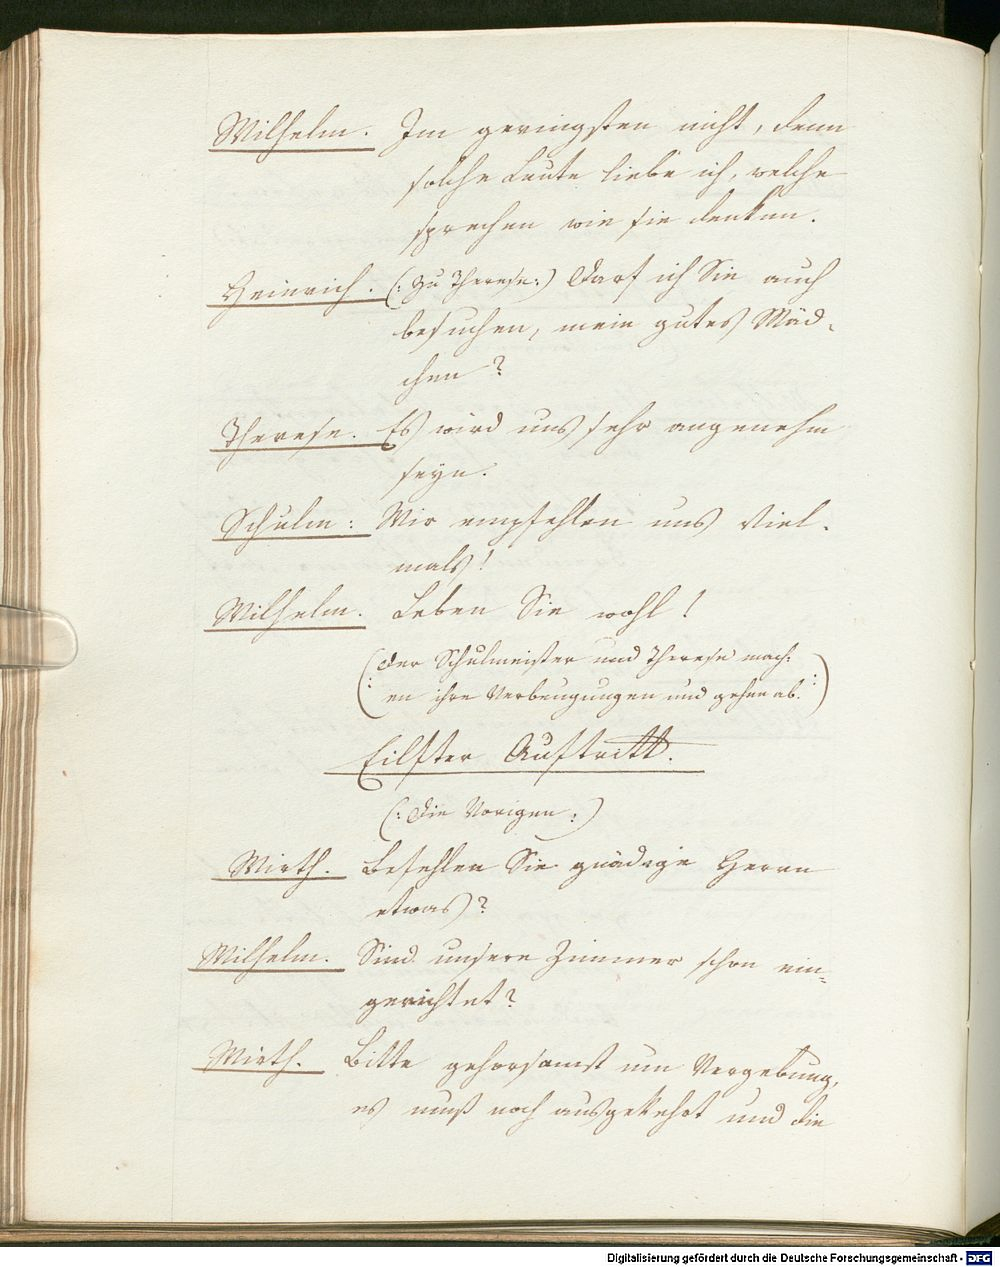 Wilhelm. Im geringsten nicht, denn
solche Leute liebe ich, welche
sprechen wie sie denken.
Heinrich. (: Zu Therese :) Darf ich Sie auch
besuchen, mein gutes Mäd-
chen?
Therese. Es wird uns sehr angenehm
seyn.
Schulm: Wir empfehlen uns viel-
mals!
Wilhelm. Leben Sie wohl!
(: der Schulmeister und Therese mach-
en ihre Verbeugungen und gehen ab. :)
Eilfter Auftritt.
(: Die Vorigen :)
Wirth. Befehlen Sie gnädige Herrn
etwas?
Wilhelm. Sind unsere Zimmer schon ein-
gerichtet?
Wirth. Bitte gehorsamst um Vergebung,
es muß noch ausgekehrt und die
Digitalisierung gefördert durch die Deutsche Forschungsgemeinschaft - DFG